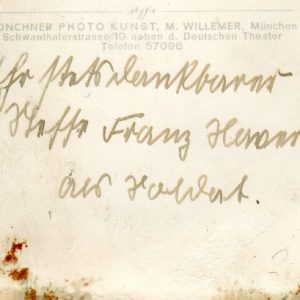 MÜNCHNER PHOTO KUNST, M. WILLEMER, München
Schwanthalerstrasse 19 neben d. Deutschen Theater
Telefon 57096
Ihr stets dankbarer
Neffe Franz Xaver
als Soldat.